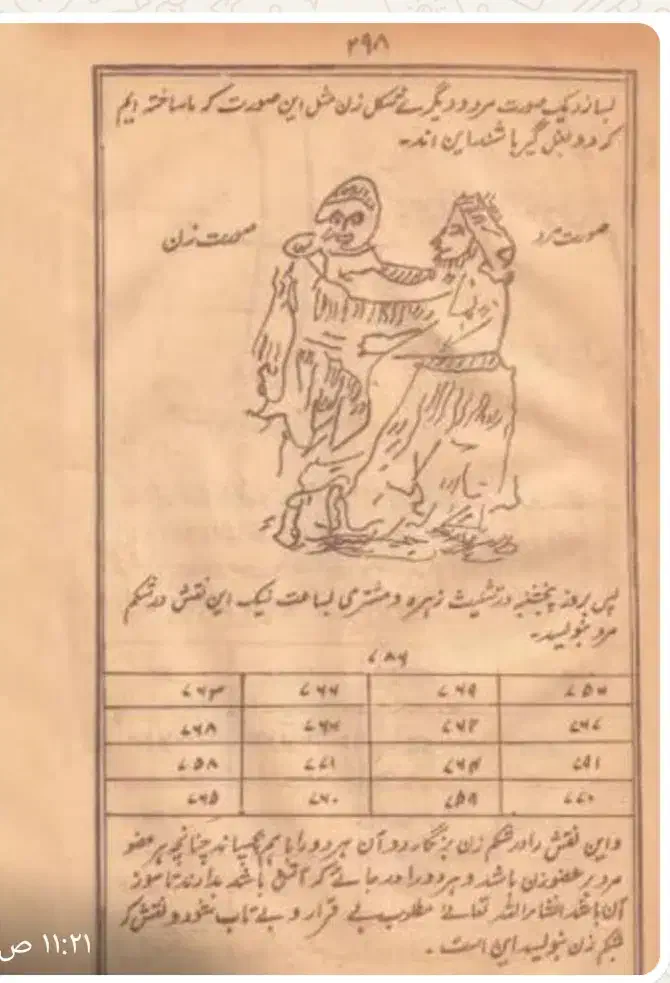 ۲۹۸
بسازد یک صورت مرد و دیگرے بشکل زن مثل این صورت کہ ما ساختہ ایم
کہ در بغل گیر باشند این اند۔
صورت مرد
صورت زن
پس بروز پنجشنبہ در تثلیث زہرہ و مشتری بساعت نیک این نقش در شکم
مرد بنویسد۔
۷۸۶
۷۵۶ ۷۶۹ ۷۶۶ ۷۶۳
۷۶۷ ۷۶۲ ۷۶۸
۷۶۱ ۷۶۴ ۷۷۱ ۷۵۸
۷۷۰ ۷۵۹ ۷۶۰ ۷۶۵
و این نقش را در شکم زن بنگارد و آن ہر دو را با ہم بچسپاند چنانچہ ہر عضو
مرد بر عضو زن باشد و ہر دو را در جائے کہ آتش باشد بدارند تا سوز
آن باشد انشاء اللہ تعالے مطلوب بے قرار و بے تاب شود و نقش کہ
شکم زن بنویسد این است۔
۱۱:۲۱ ص